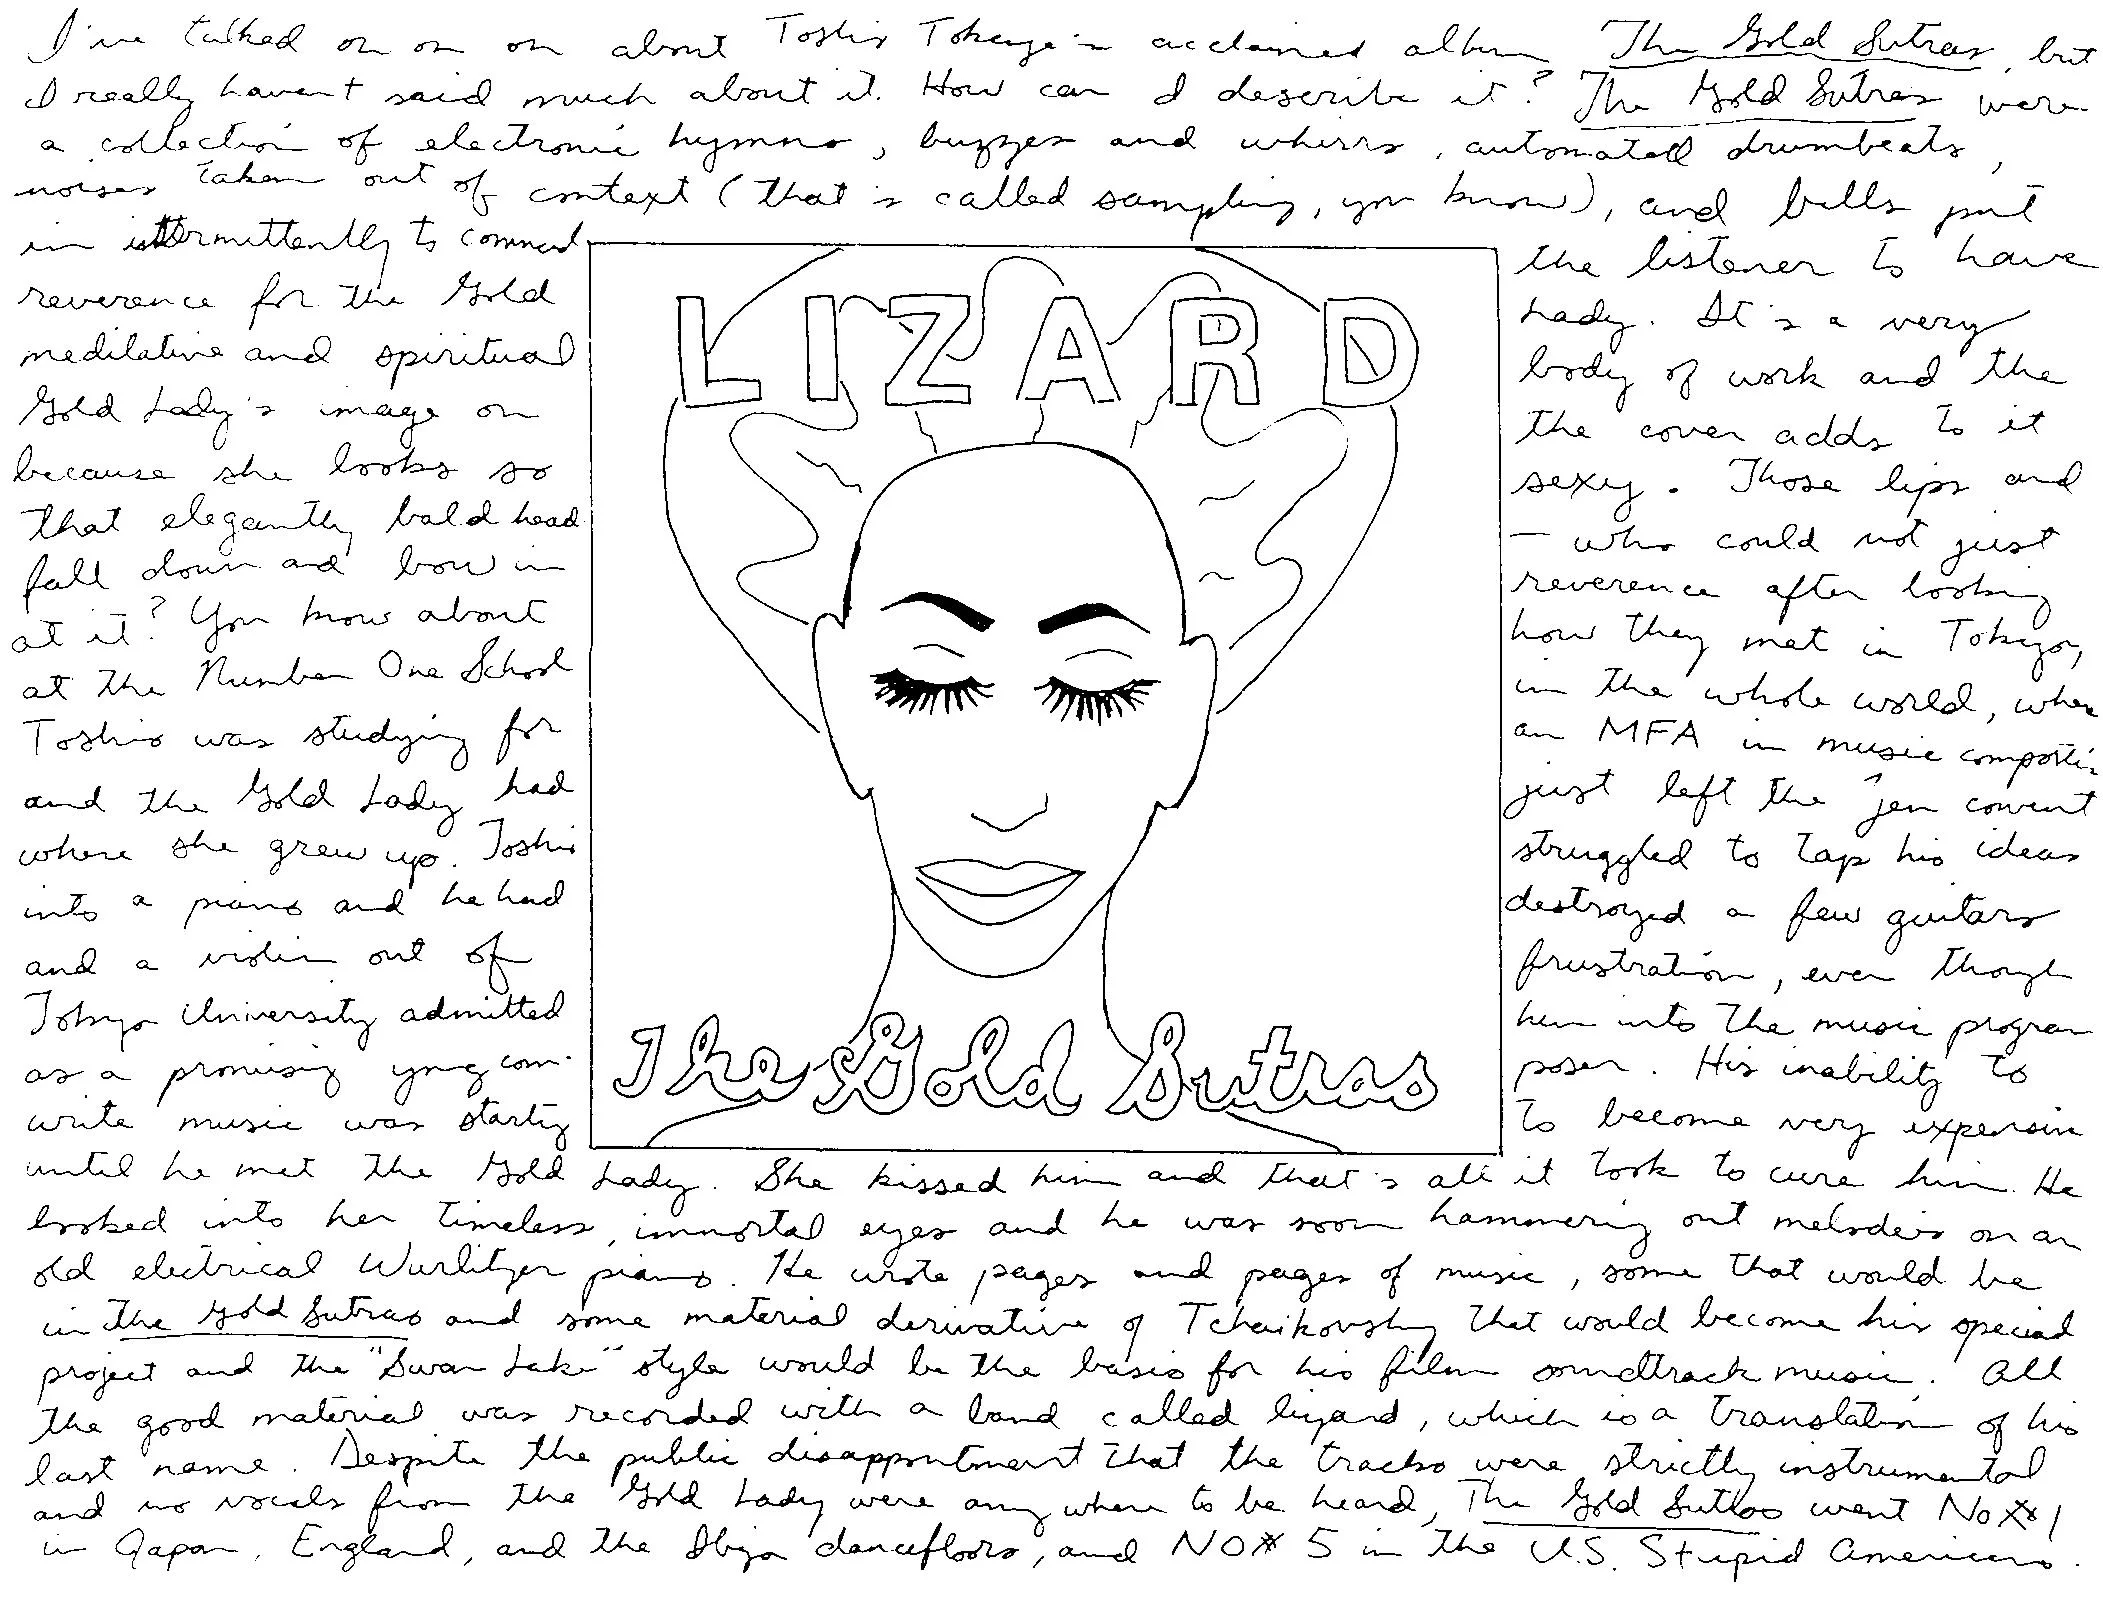 I've talked on on on about Toshio Tokage's acclaimed album The Gold Sutras, but
I really haven't said much about it. How can I describe it? The Gold Sutras were
a collection of electronic hymns, buzzes and whirrs, automated drumbeats,
noises taken out of context (that's called sampling, you know), and bells put
in intermittently to command the listener to have
reverence for the Gold Lady. It's a very
meditative and spiritual body of work and the
Gold Lady's image on the cover adds to it
because she looks so sexy. Those lips and
that elegantly bald head — who could not just
fall down and bow in reverence after looking
at it? You know about how they met in Tokyo,
at the Number One School in the whole world, where
Toshio was studying for an MFA in music composition
and the Gold Lady had just left the Zen convent
where she grew up. Toshio struggled to tap his ideas
into a piano and he had destroyed a few guitars
and a violin out of frustration, even though
Tokyo University admitted him into the music program
as a promising yng com- poser. His inability to
write music was starting to become very expensive
until he met the Gold Lady. She kissed him and that's all it took to cure him. He
looked into her timeless, immortal eyes and he was soon hammering out melodies on an
old electrical Wurlitzer piano. He wrote pages and pages of music, some that would be
in The Gold Sutras and some material derivative of Tchaikovsky that would become his special
project and the "Swan Lake" style would be the basis for his film soundtrack music. All
the good material was recorded with a band called Lizard, which is a translation of his
last name. Despite the public disappointment that the tracks were strictly instrumental
and no vocals from the Gold Lady were anywhere to be heard, The Gold Sutras went No # 1
in Japan, England, and the Ibiza dancefloors, and NO # 5 in the U.S. Stupid Americans.
LIZARD
The Gold Sutras